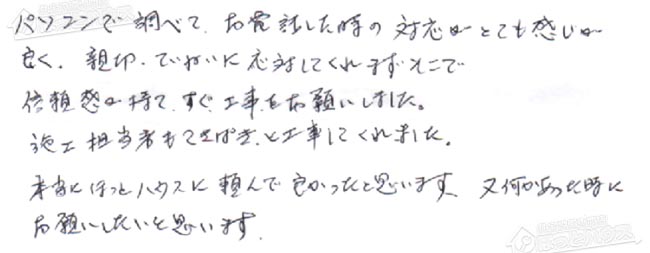 パソコンで調べて、お電話した時の対応がとても感じが
良く、親切、ていねいに応対してくれまずそこで
信頼感が持て、すぐ工事をお願いしました。
施工担当者もてきぱきと工事してくれました。
本当にほっとハウスに頼んで良かったと思います。又何かあった時に
お願いしたいと思います。
ほっとハウス